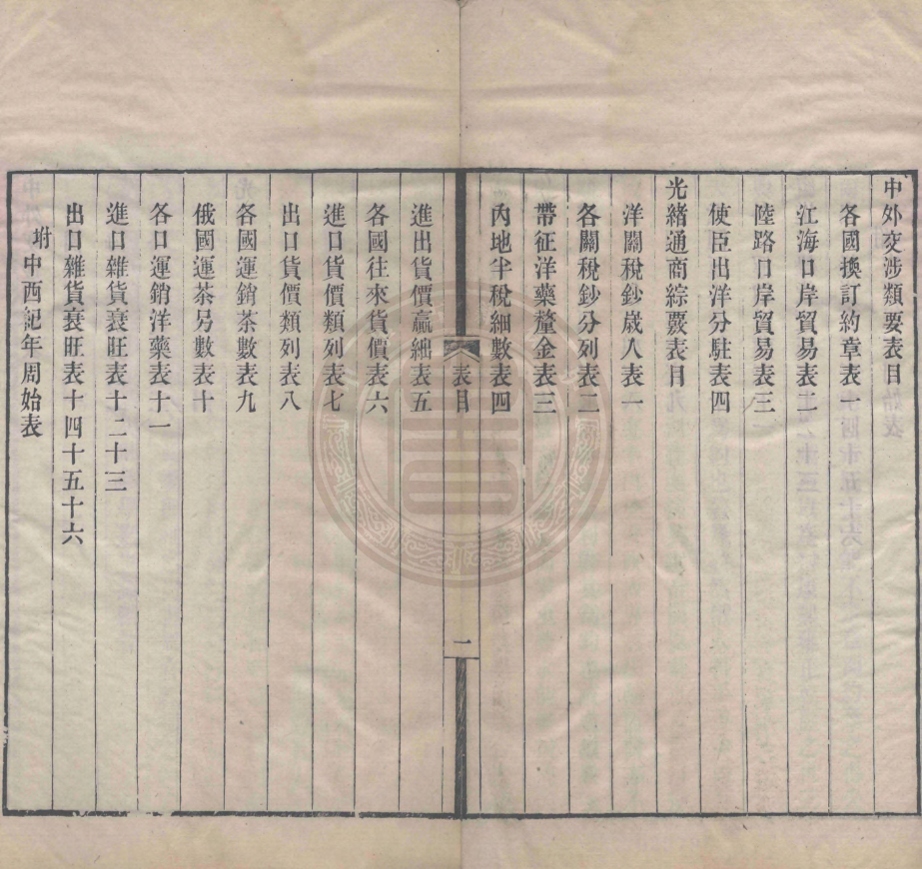 中外交涉類要表目
各國換訂約章表一
江海口岸貿易表二
陸路口岸貿易表三
使臣出洋分駐表四
光緒通商綜覈表目
洋關稅鈔歲入表一
各關稅鈔分列表二
帶征洋藥釐金表三
內地半稅細數表四
表目
一
進出貨價贏絀表五
各國往來貨價表六
進口貨價類列表七
出口貨價類列表八
各國運銷茶數表九
俄國運茶另數表十
各口運銷洋藥表十一
進口雜貨衰旺表十二十三
出口雜貨衰旺表十四十五十六
坿中西紀年周始表